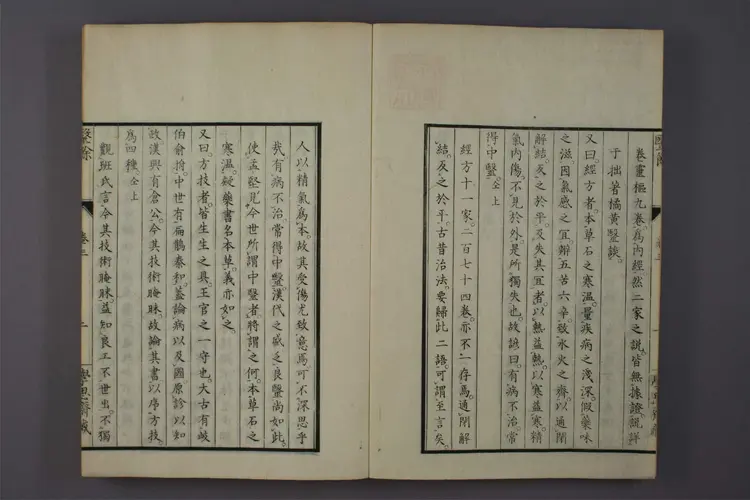 卷靈樞九卷爲內經然二家之說皆無據證說詳
于拙著橘黃醫談
又曰經方者本草石之寒溫量疾病之淺深假藥味
之滋因氣感之宜辯五苦六辛致水火之齊以通閉
解結反之於平及失其宜者以熱益熱以寒益寒精
氣內傷不見於外是所獨失也故諺曰有病不治常
得中醫仝上
經方十一家二百七十四卷亦不一存焉通閉解
結反之於平古昔治法要歸此二語可謂至言矣
人以精氣爲本故其受傷尤致意焉可不深思乎
哉有病不治常得中醫漢代之盛乏良醫尚如此
使孟堅見今世所謂中醫者將謂之何本草石之
寒溫疑藥書名本草義亦如之
又曰方技者皆生生之具王官之一守也大古有岐
伯俞拊中世有扁鵲秦和蓋論病以及國原診以知
政漢興有倉公今其技術晻昧故論其書以序方技
爲四種仝上
觀班氏言今其技術晻昧益知良工不世出不獨
醫餘
卷三
二